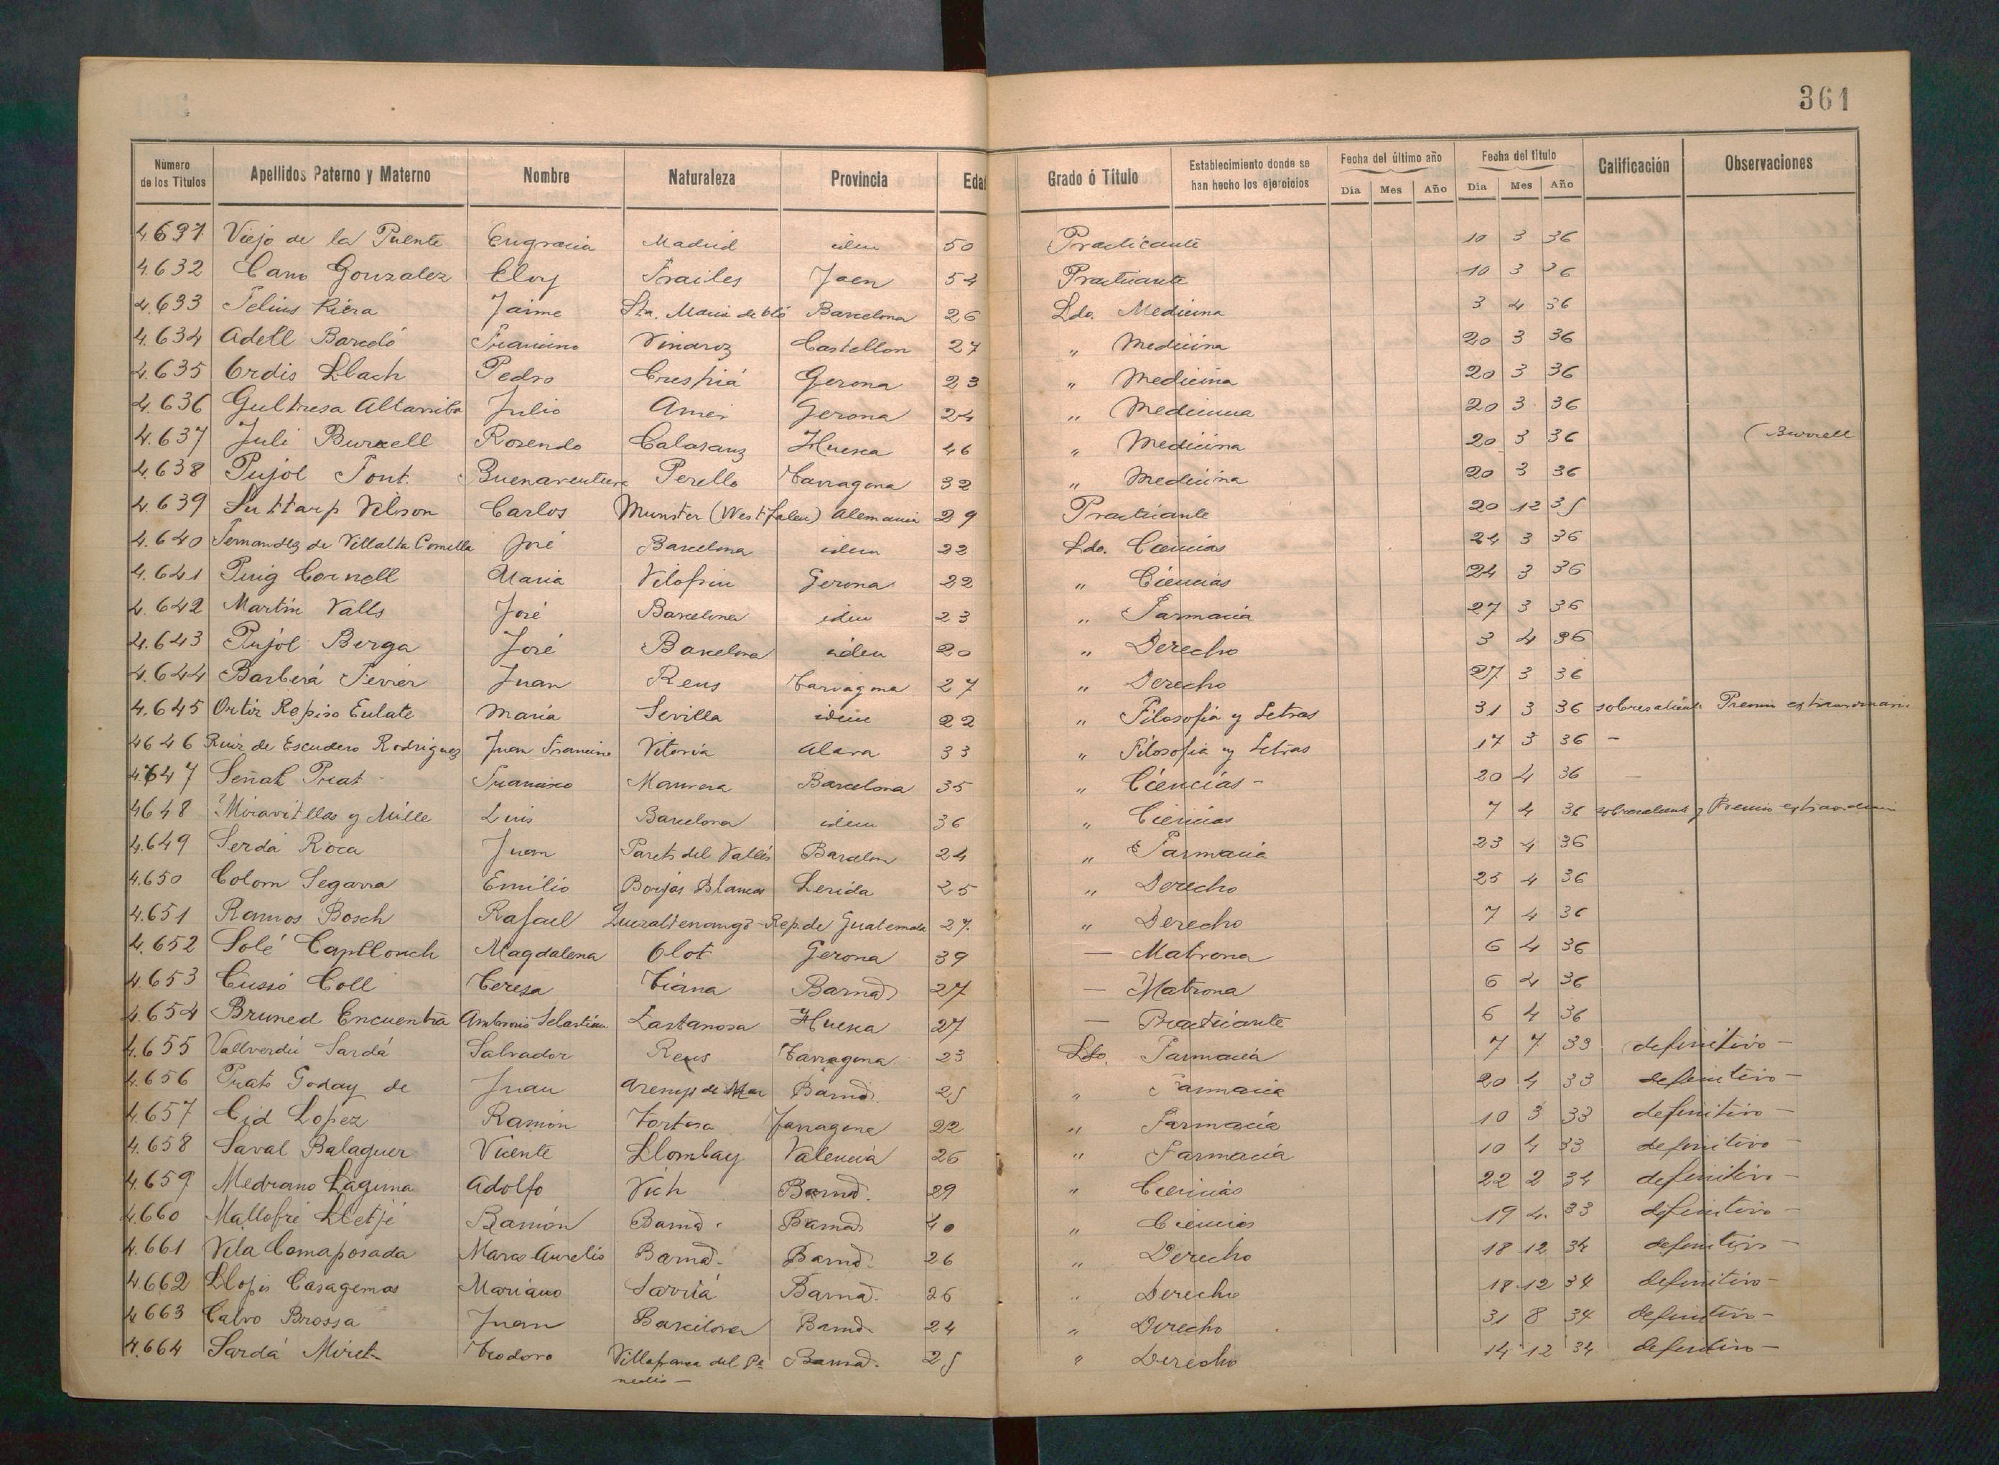 361
Número de los Títulos Apellidos Paterno y Materno Nombre Naturaleza Provincia Edad Grado ó Título Establecimiento donde se han hecho los ejercicios Fecha del último año Día Mes Año Fecha del título Día Mes Año Calificación Observaciones
4.631 Viejo de la Puente Engracia Madrid idem 50 Practicante 10 3 36
4.632 Cano Gonzalez Eloy Frailes Jaen 54 Practicante 10 3 36
4.633 Felius Riera Jaime Sta. Maria de Barcelona 26 Ldo. Medicina 3 4 36
4.634 Adell Barceló Francisco Vinaroz Castellon 27 " Medicina 20 3 36
4.635 Ordis Llach Pedro Crespiá Gerona 23 " Medicina 20 3 36
4.636 Gultresa Altarriba Julio Amer Gerona 24 " Medicina 20 3 36
4.637 Juli Burrell Rosendo Calasanz Huesca 46 " Medicina 20 3 36 (Burrell
4.638 Pujol Font. Buenaventura Perello Tarragona 32 " Medicina 20 3 36
4.639 Suttarp Carlos Munster (Westfalen) Alemania 29 Practicante 20 12 35
4.640 Fernandez de Villalta Comella José Barcelona idem 22 Ldo. Ciencias 24 3 36
4.641 Puig Cornell Maria Gerona 22 " Ciencias 24 3 36
4.642 Martin Valls José Barcelona idem 23 " Farmacia 27 3 36
4.643 Pujol Berga José Barcelona idem 20 " Derecho 3 4 36
4.644 Barberá Ferrer Juan Reus Tarragona 27 " Derecho 27 3 36
4.645 Ortiz Repiso Eulate Maria Sevilla idem 22 " Filosofia y Letras 31 3 36 sobresaliente Premio extraordinario
4646 Ruiz de Escudero Rodriguez Juan Francisco Vitoria Alava 33 " Filosofia y Letras 17 3 36 -
4647 Señal Prat Francisco Manresa Barcelona 35 " Ciencias - 20 4 36 -
4648 Miravitllas y Mille Luis Barcelona idem 36 " Ciencias 7 4 36 sobresaliente y Premio extraordinario
4.649 Serdá Roca Juan Parets del Vallés Barcelon 24 " Farmacia 23 4 36
4.650 Colom Segarra Emilio Borjas Blancas Lerida 25 " Derecho 25 4 36
4.651 Ramos Bosch Rafael Quezaltenango - Rep. de Guatemala 27. " Derecho 7 4 36
4.652 Solé Capllonch Magdalena Olot Gerona 39 — Matrona 6 4 36
4.653 Cussó Coll Teresa Tiana Barnaᵃ 27 — Matrona 6 4 36
4.654 Bruned Encuentra Ambrosio Sebastian Lastanosa Huesca 27 — Practicante 6 4 36
4.655 Vallverdú Sardá Salvador Reus Tarragona 23 Ldo. Farmacia 7 7 33 definitivo -
4.656 Prats Goday de Juan Arenys de Mar Barnaᵃ. 25 " Farmacia 20 4 33 definitivo -
4.657 Cid Lopez Ramón Tortosa Tarragona 22 " Farmacia 10 3 33 definitivo -
4.658 Saval Balaguer Vicente Llombay Valencia 26 " Farmacia 10 4 33 definitivo -
4.659 Medrano Laguna Adolfo Vich Barnaᵃ. 29 " Ciencias 22 2 34 definitivo -
4.660 Mallofré Lletjé Ramón Barnaᵃ. Barnaᵃ 40 " Ciencias 19 4. 33 definitivo -
4.661 Vila Comaposada Marco Aurelio Barnaᵃ. Barnaᵃ. 26 " Derecho 18 12 34 definitivo -
4662 Llopis Casagemas Mariano Sarriá Barnaᵃ. 26 " Derecho 18 12 34 definitivo -
4663 Calvo Brossa Juan Barcelona Barnaᵃ. 24 " Derecho 31 8 34 definitivo -
4.664 Sardá Miret Teodoro Villafranca del Pa Barnaᵃ. 25 " Derecho 14 12 34 definitivo -
nedés -